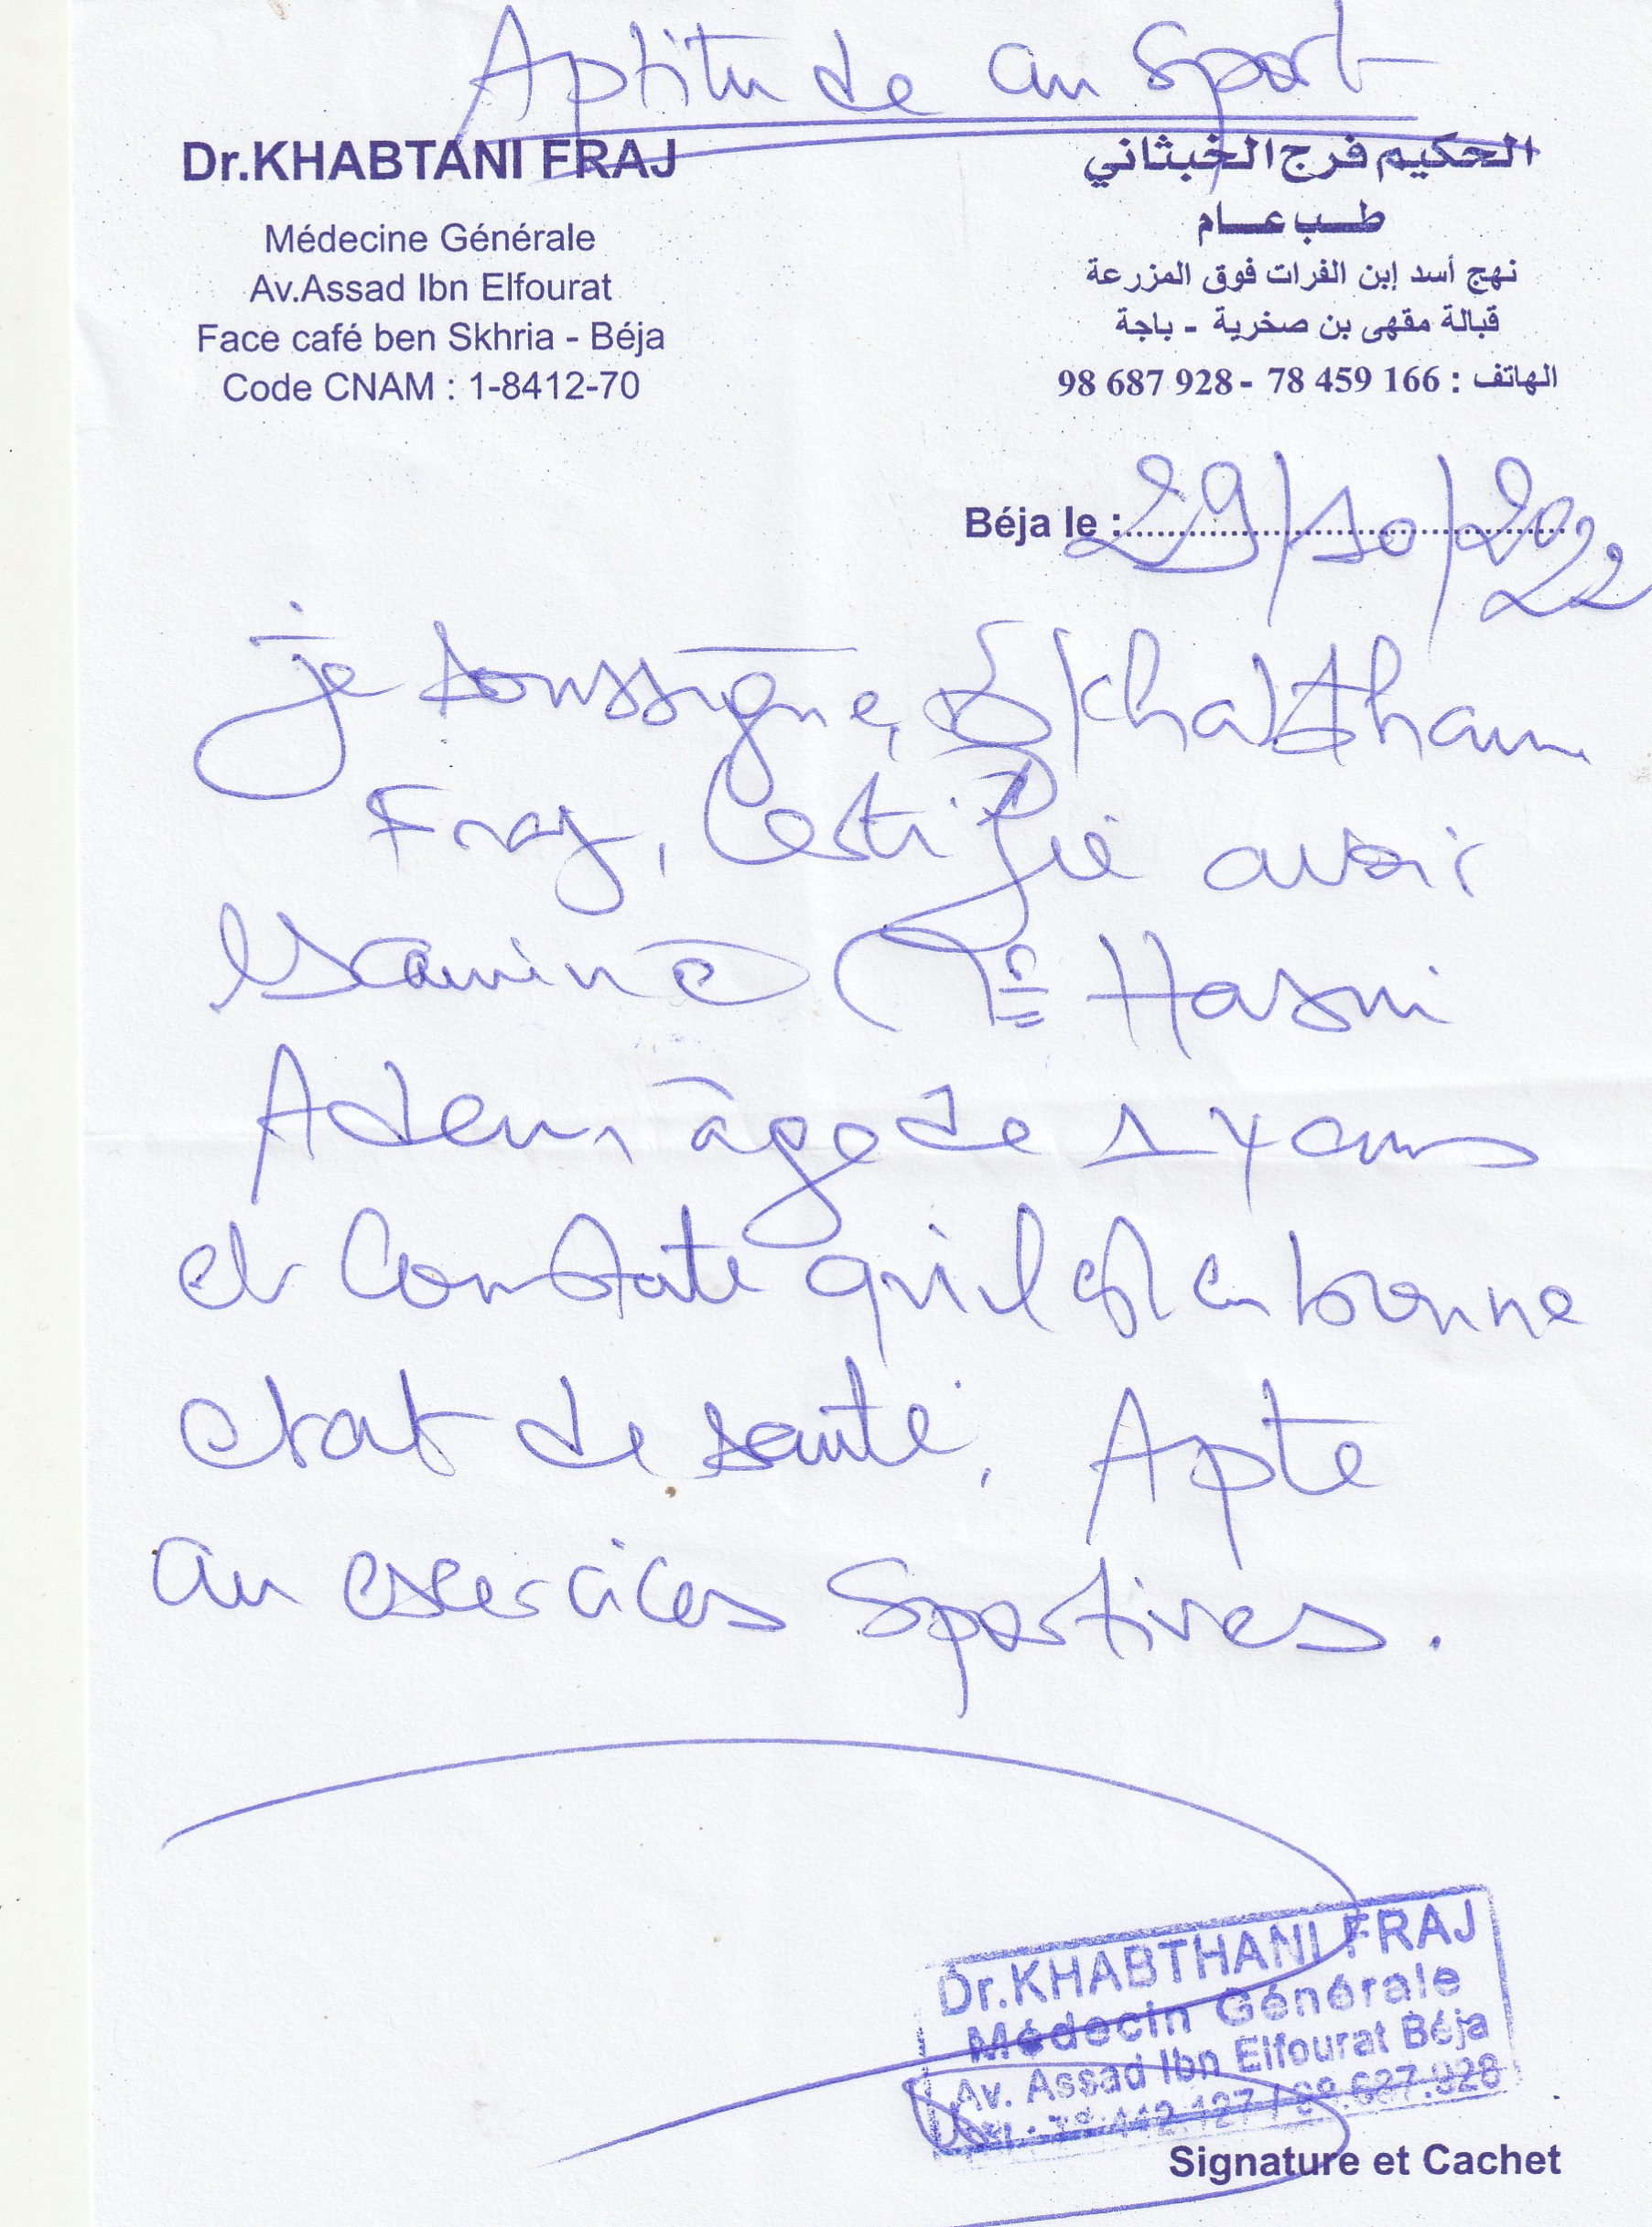 Aptitude au Sport
Dr.KHABTANI FRAJ
Médecine Générale
Av.Assad Ibn Elfourat
Face café ben Skhria - Béja
Code CNAM : 1-8412-70
الحكيم فرج الخبثاني
طب عام
نهج أسد إبن الفرات فوق المزرعة
قبالة مقهى بن صخرية - باجة
الهاتف : 166 459 78 - 928 687 98
Béja le : 29/10/2022
je soussigné, Dr Khabthani
Fraj, Certifie avoir
examiné
Hasni
Adem, âge de 14 ans
et Constate qu'il est en bonne
etat de santé, Apte
au exercices Sportives.
Dr.KHABTHANI FRAJ
Médecin Générale
Av. Assad Ibn Elfourat Béja
Signature et Cachet